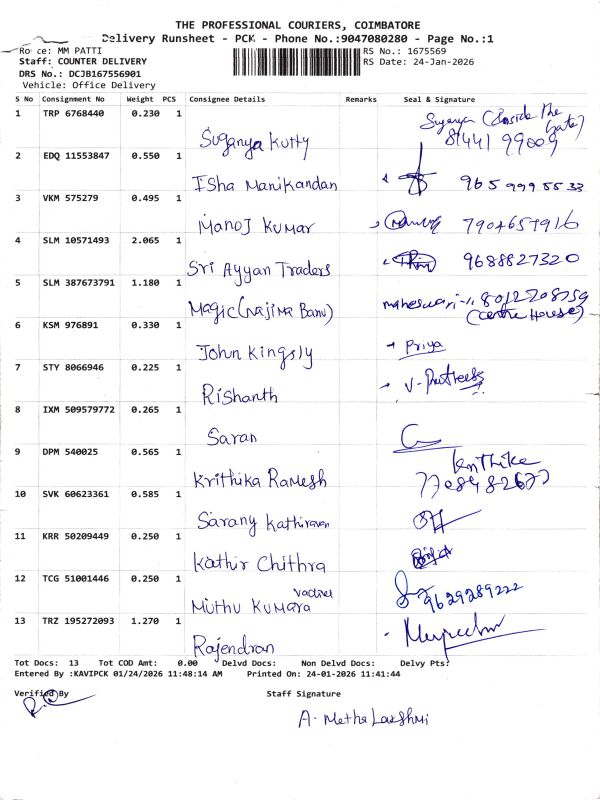 THE PROFESSIONAL COURIERS, COIMBATORE
Delivery Runsheet - PCK - Phone No.:9047080280 - Page No.:1
MM PATTI
RS No.: 1675569
Staff: COUNTER DELIVERY
RS Date: 24-Jan-2026
DRS No.: DCJB167556901
Vehicle: Office Delivery
S No Consignment No Weight PCS Consignee Details Remarks Seal & Signature
1 TRP 6768440 0.230 1 Suganya Kutty
2 EDQ 11553847 0.550 1 Isha Manikandan 965 999 55 33
3 VKM 575279 0.495 1 Manoj Kumar 7904657916
4 SLM 10571493 2.065 1 Sri Ayyan Traders 9688827320
5 SLM 387673791 1.180 1 Magic (Najima Banu) maheswari
(centre House)
6 KSM 976891 0.330 1 John Kingsly Priya
7 STY 8066946 0.225 1 Rishanth
8 IXM 509579772 0.265 1 Saran
9 DPM 540025 0.565 1 Krithika Ramesh
10 SVK 60623361 0.585 1 Sarang Kathiravan
11 KRR 50209449 0.250 1 Kathir Chithra
12 TCG 51001446 0.250 1 Muthu Kumara 9629289222
13 TRZ 195272093 1.270 1 Rajendran
Tot Docs: 13 Tot COD Amt: 0.00 Delvd Docs: Non Delvd Docs: Delvy Pts:
Entered By :KAVIPCK 01/24/2026 11:48:14 AM Printed On: 24-01-2026 11:41:44
Verified By Staff Signature
A. Metha Lakshmi